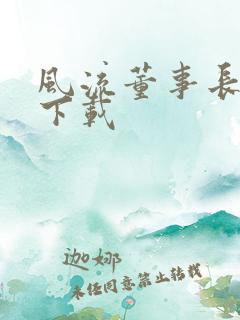 風流董事長
下載
迦娜
未经同意禁止转载